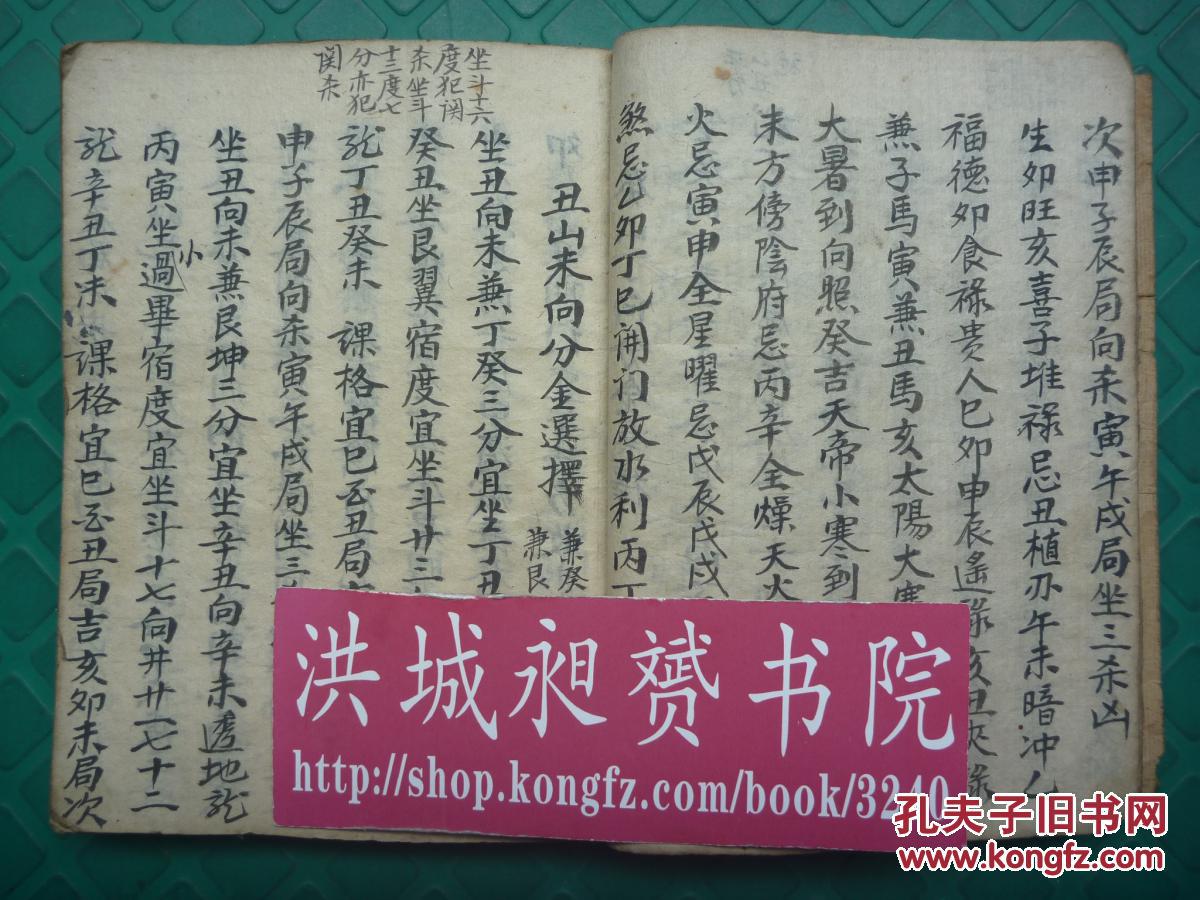 次申子辰局向杀寅午戌局坐三杀凶
生卯旺亥喜子堆禄忌丑植刃午未暗冲人
福德卯食禄贵人巳卯申辰遙禄亥丑夹禄
兼子馬寅兼丑馬亥太陽大寒
大暑到向照癸吉天帝小寒到
未方傍陰府忌丙辛全燥天火
火忌寅申全星曜忌戊辰戊戌
煞忌乙卯丁巳開门放水利丙丁
丑山未向分金選擇
兼癸
兼艮
坐丑向未兼丁癸三分宜坐丁丑
癸丑坐艮翼宿度宜坐斗廿三
龙丁丑癸未 課格宜巳酉丑局
申子辰局向杀寅午戌局坐三
坐丑向未兼艮坤三分宜坐辛丑向辛未透地龙
丙寅坐過小畢宿度宜坐斗十七向井廿一七十二
龙辛丑丁未 課格宜巳酉丑局吉亥卯未局次
坐斗十六
度犯関
杀坐斗
十三度七
分亦犯
関杀
洪城昶赟书院
http://shop.kongfz.com/book/3240
孔夫子旧书网
www.kongfz.com